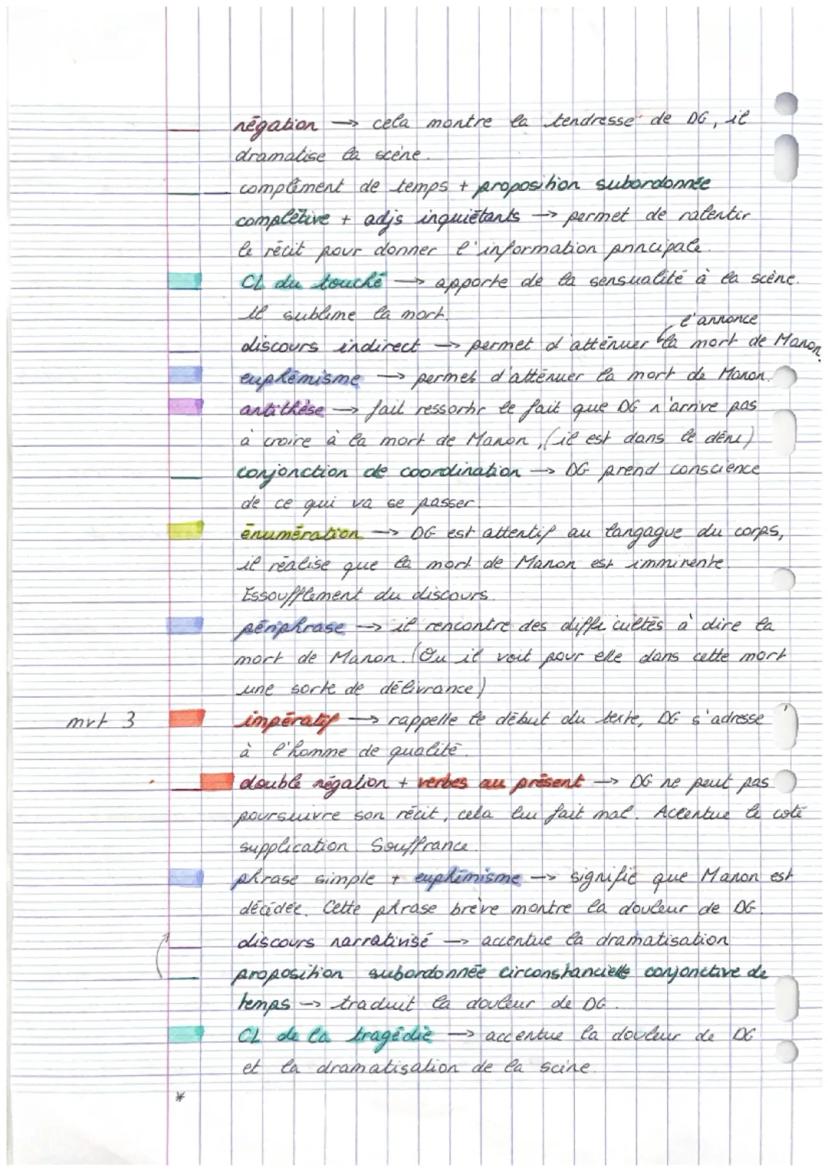 négation → cela montre la tendresse de DG, il
dramatise la scène.
complément de temps + proposition subordonnée
complétive + adjs inquiétants → permet de ralentir
le récit pour donner l'information principale.
CL du touché → apporte de la sensualité à la scène.
Il sublime la mort.
l'annonce
discours indirect → permet d'atténuer la mort de Manon.
euphémisme → permet d'atténuer la mort de Manon.
antithèse → fait ressortir le fait que DG n'arrive pas
à croire à la mort de Manon, (il est dans le déni)
conjonction de coordination → DG prend conscience
de ce qui va se passer.
énumération → DG est attentif au langague du corps,
il réalise que la mort de Manon est imminente.
Essoufflement du discours.
périphrase → il rencontre des difficultés à dire la
mort de Manon. (Ou il voit pour elle dans cette mort
une sorte de délivrance)
mvt 3
impératif → rappelle le début du texte, DG s'adresse
à l'homme de qualité.
double négation + verbes au présent → DG ne peut pas
poursuivre son récit, cela lui fait mal. Accentue le coté
supplication. Souffrance.
phrase simple + euphémisme → signifie que Manon est
décédée. Cette phrase brève montre la douleur de DG.
discours narrativisé → accentue la dramatisation
proposition subordonnée circonstancielle conjonctive de
temps → traduit la douleur de DG.
CL de la tragédie → accentue la douleur de DG
et la dramatisation de la scène.
*